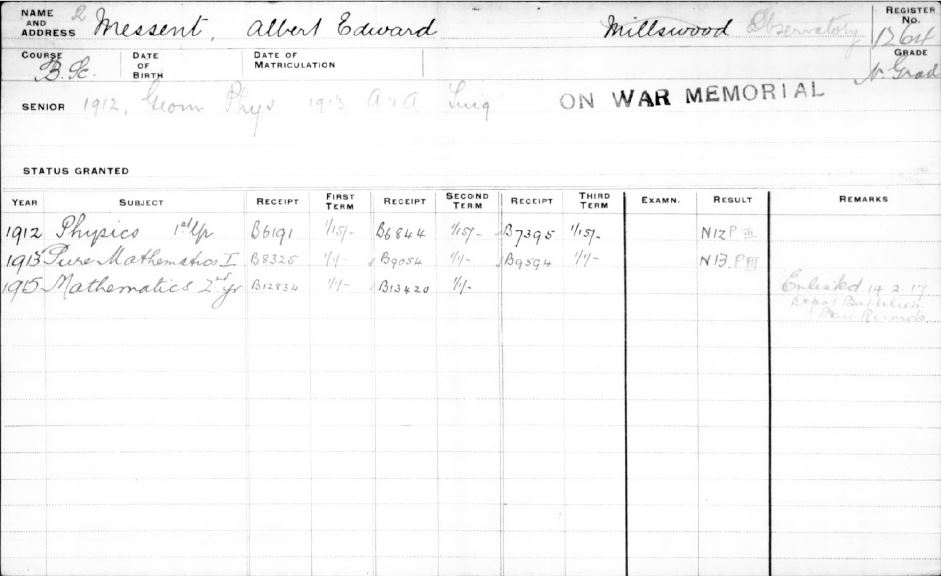 NAME AND ADDRESS 2 Messent, Albert Edward Millswood Observatory REGISTER No. 1264
COURSE B.Sc. DATE OF BIRTH DATE OF MATRICULATION GRADE N. Grad
SENIOR 1912, Geom Phys 1913 A & A Trig ON WAR MEMORIAL
STATUS GRANTED
YEAR SUBJECT RECEIPT FIRST TERM RECEIPT SECOND TERM RECEIPT THIRD TERM EXAMN. RESULT REMARKS
1912 Physics 1st yr B6191 1/15/- B6844 1/15/- B7395 1/15/- N12 P III
1913 Pure Mathematics I B8325 1/1/- B9054 1/1/- B9594 1/1/- N13 P III
1915 Mathematics 2nd yr B12834 1/1/- B13420 1/1/- Enlisted 14 2 17
Depot Battalion
Base Records